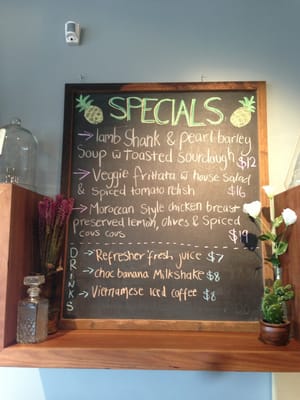 SPECIALS
→ lamb Shank & pearl barley
Soup w Toasted sourdough $12
→ Veggie frittata w house salad
& spiced tomato relish $16
→ Moroccan Style chicken breast
preserved lemon, olives & Spiced
cous cous $19
DRINKS
→ Refresher fresh juice $7
→ choc banana Milkshake $8
→ Vietnamese Iced coffee $8